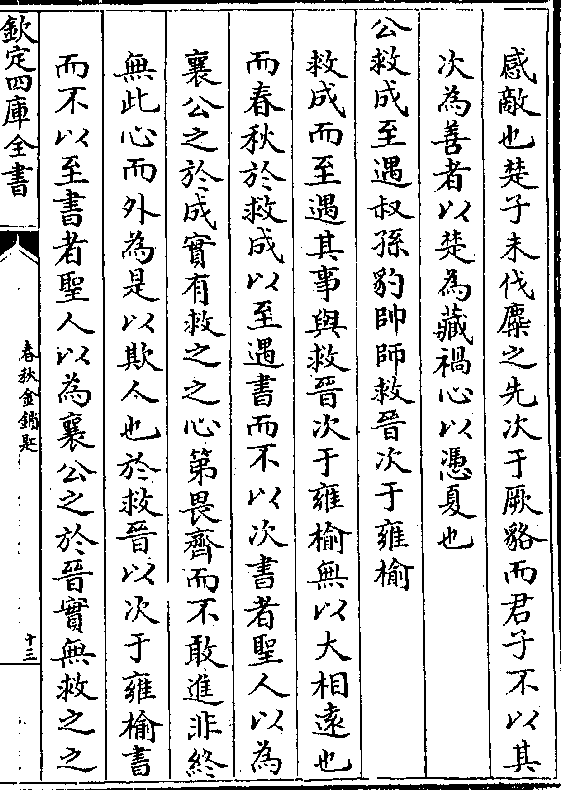 惑敵也楚子未伐麋之先次于厥貉而君子不以其
次為善者以楚為藏禍心以憑夏也
公救成至遇叔孫豹帥師救晉次于雍榆
救成而至遇其事與救晉次于雍榆無以大相遠也
而春秋於救成以至遇書而不以次書者聖人以為
襄公之於成實有救之之心第畏齊而不敢進非終
無此心而外為是以欺人也於救晉以次于雍榆書
而不以至書者聖人以為襄公之於晉實無救之之
欽定四庫全書
春秋金鎖匙
十三